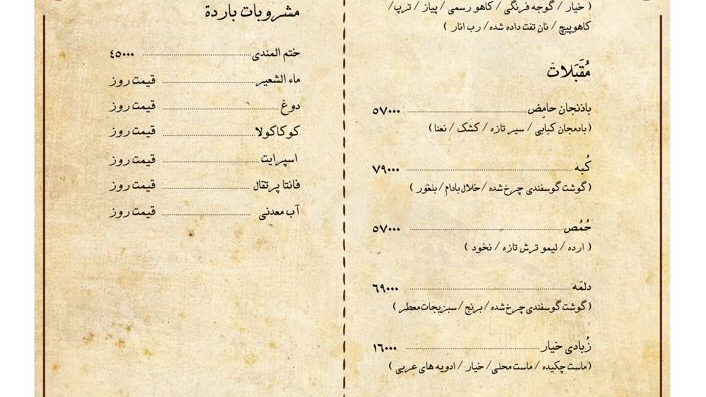 ( خیار / گوجه فرنگی / کاهو رسمی / پیاز / ترب/
کاهوپیچ / نان تفت داده شده / رب انار )
مُقَبَلات
باذنجان حامِض ۵۷۰۰۰
( بادمجان کبابی / سیر تازه / کشک / نعنا )
کُبه ۷۹۰۰۰
( گوشت گوسفندی چرخ شده / خلال بادام / بلغور )
حُمُص ۵۷۰۰۰
( ارده / لیمو ترش تازه / نخود )
دلمَه ۶۹۰۰۰
( گوشت گوسفندی چرخ شده / برنج / سبزیجات معطر )
زُبادی خیار ۱۶۰۰۰
( ماست چکیده / ماست محلی / خیار / ادویه های عربی )
مشروبات باردة
ختم المندی ٤٥٠٠٠
ماء الشعیر قیمت روز
دوغ قیمت روز
کوکاکولا قیمت روز
اسپرایت قیمت روز
فانتا پرتقال قیمت روز
آب معدنی قیمت روز